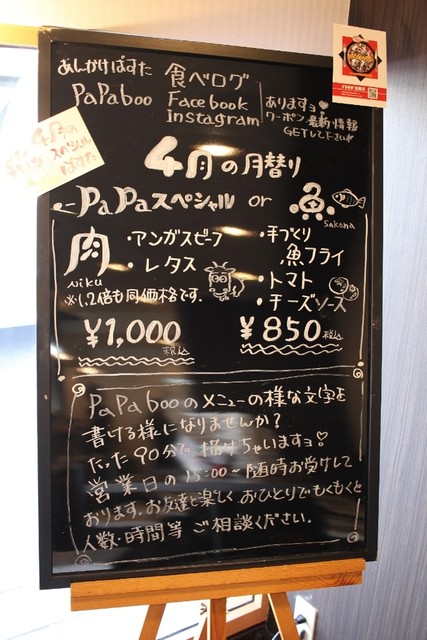 あんかけぱすた 食べログ
PaPaboo Facebook
Instagram
ありますョ♡
クーポン、最新情報
GETして下さい♪
4月の
スペシャル
4月の月替り
PaPaスペシャル or 魚
Sakana
肉
Niku
・アンガスビーフ
・レタス
※1,2倍も同価格です。
¥1,000
税込
・手づくり
魚フライ
・トマト
・チーズソース
¥850税込
PaPabooのメニューの様な文字を
書ける様になりませんか?
たった90分で描けちゃいますョ♡
営業日の15:00~随時お受けして
おります。お友達と楽しく、おひとりでもくもくと
人数・時間等 ご相談ください。